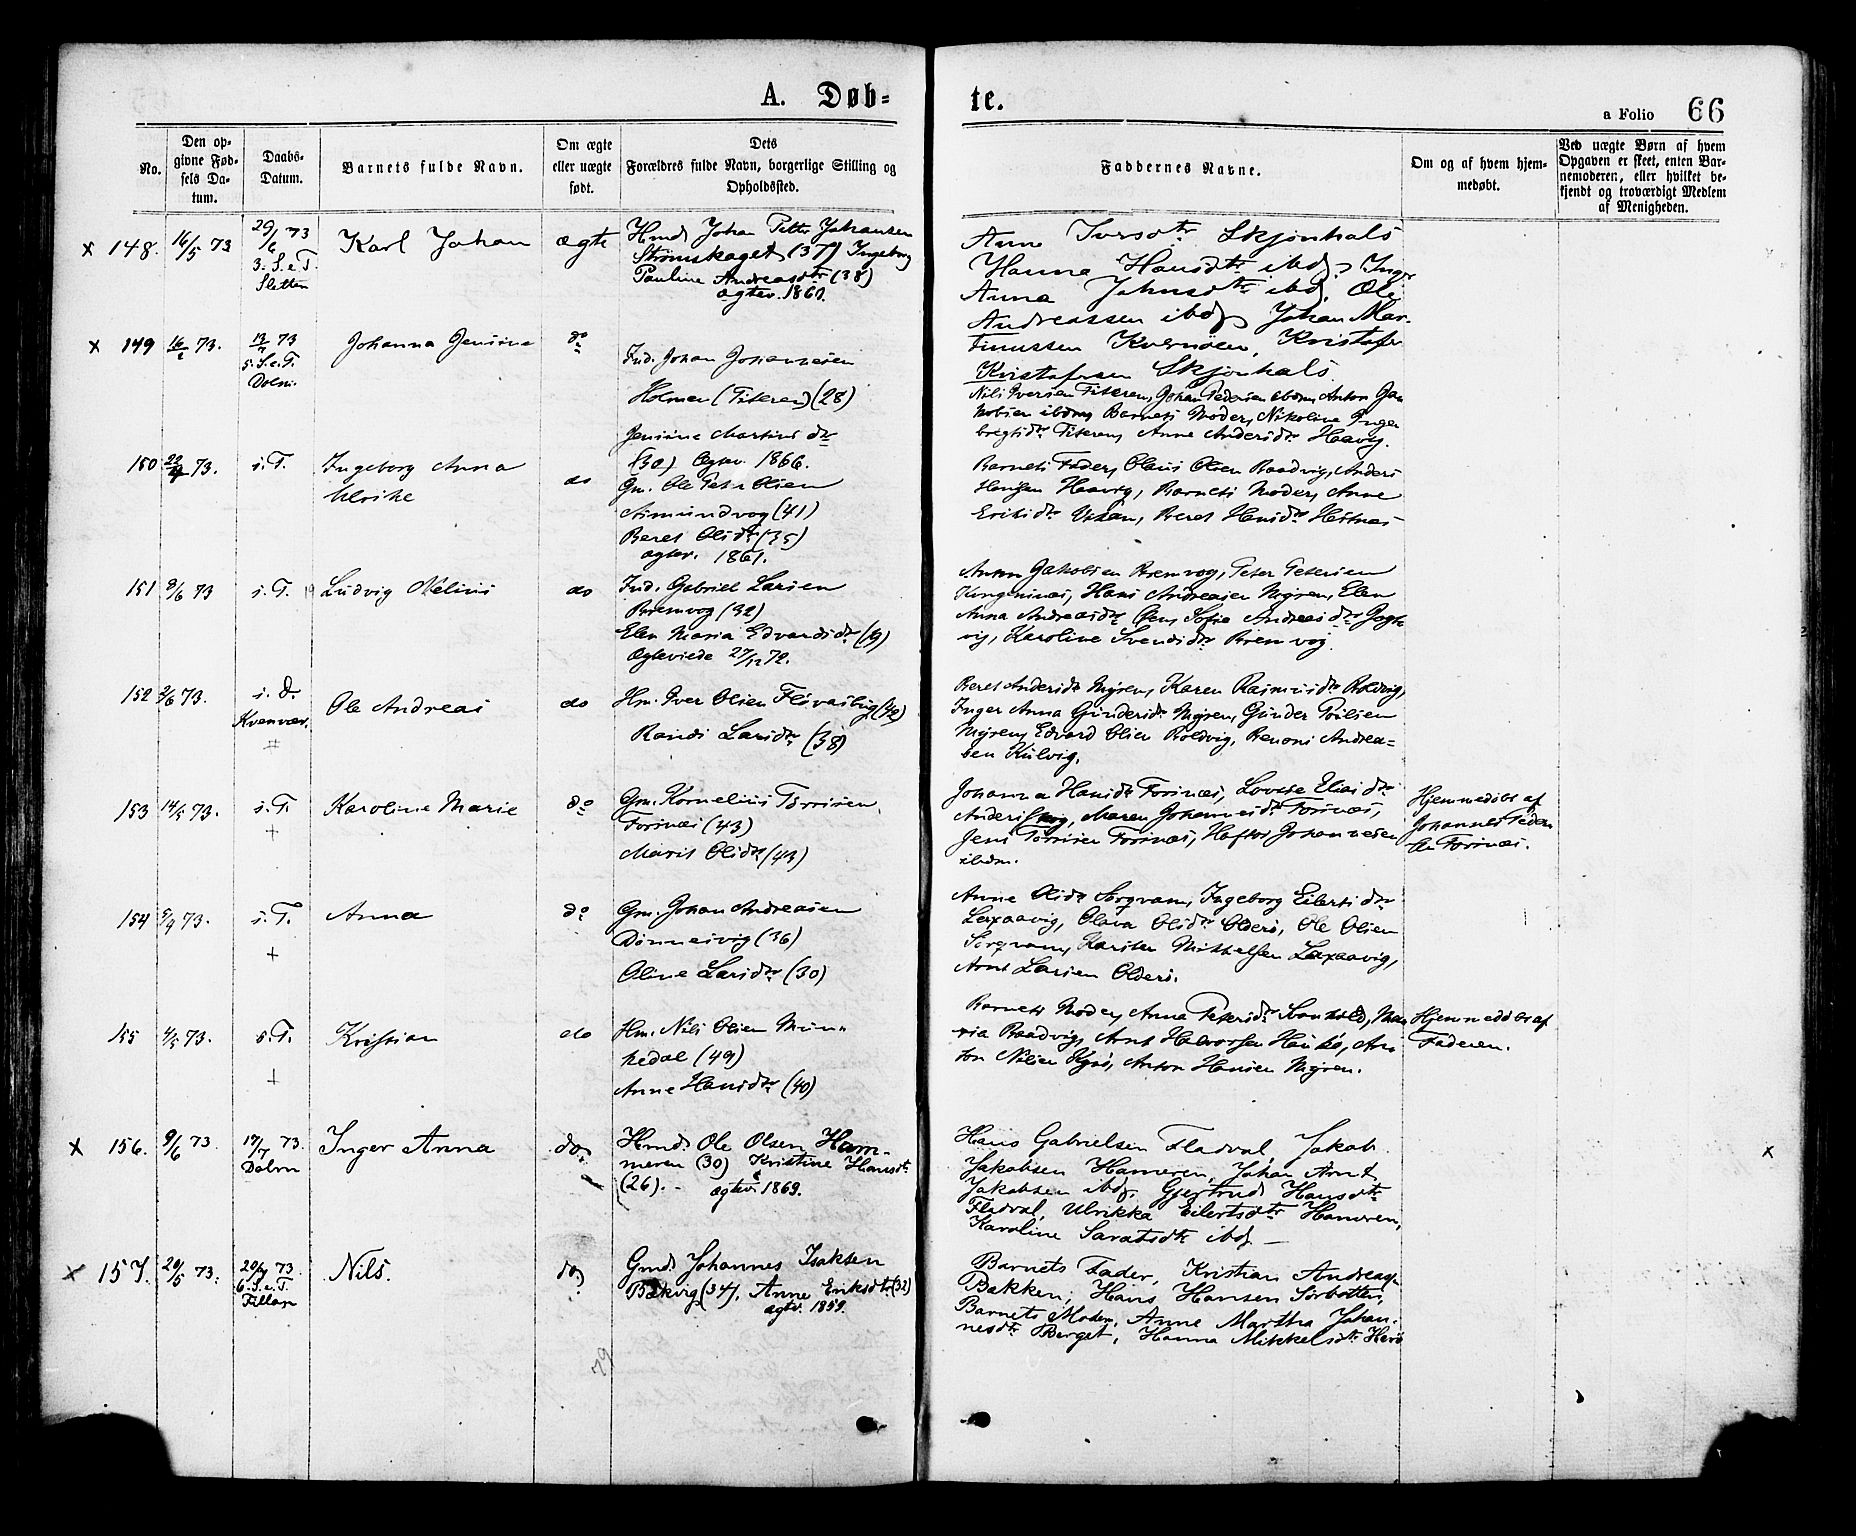 A. Døb=
te.
a Folio 66
No.
Den op-
givne Fød-
sels Da-
tum.
Daabs-
Datum.
Barnets fulde Navn.
Om ægte
eller uægte
født.
Dets
Forældres fulde Navn, borgerlige Stilling og
Opholdssted.
Faddernes Navne.
Om og af hvem hjem-
medøbt.
Ved uægte Børn af hvem
Opgaven er skeet, enten Bar-
nemoderen, eller hvilket be-
kjendt og troværdigt Medlem
af Menigheden.
x 148. 16/5 73
29/6 73
3. S. e. T.
Sletten
Karl Johan
ægte
Hmd. Johan Petter Johansen
Strømskaget (37) Ingeborg
Pauline Andreasdtr (38)
ægtev. 1860.
Anne Iversdtr Skjønhals
Hanna Hansdtr ibd., Inger
Anna Johnsdtr ibd. Ole
Andreassen ibd., Johan Mar-
tinussen Kvernøen, Kristofer
Kristofersen Skjønhals
x 149 73.
13/7 73
5. S. e. T.
Dolm.
Johanna Jensine
do
Ind. Johan Johannesen
Holmen (28)
Jensine Martins dtr
(30) Ægtev. 1866.
Nils Iversen Johan Pedersen ibdm, Anton Ja-
kobsen ibdm, Barnets Moder, Nikoline Inge-
bregtsdtr Anne Andersdtr Haavig.
150 73.
s. T.
Ingeborg Anna
Ulrikke
do
Gm. Ole Peter Olsen
Asmundvog (41)
Beret Olsdtr (35)
ægtev. 1861.
Barnets Fader, Olaus Olsen Raadvig, Anders
Hansen Haavig, Barnets Moder, Anne
Eriksdtr Beret Hansdtr Hestnes
151 8/6 73
s. T.
Ludvig Melius
do
Ind. Gabriel Larsen
Bremvog (32)
Elen Maria Edvardsdtr (19)
Ægteviede 27/12 72.
Anton Jakobsen Bremvog, Peter Petersen
Kongensnes, Hans Andreasen Myren, Elen
Anna Andreasdtr Sofie Andreasdtr Jøgt-
vig, Karoline Svendsdtr Bremvog.
152 2/6 73.
s. D.
Kvenvær.
#
Ole Andreas
do
Hm. Iver Olsen
Randi Larsdtr (38)
Beret Andersdtr Myren, Karen Rasmusdtr Boldvig,
Inger Anna Gundersdtr Myren, Gunder
Myren, Edvard Olsen Boldvig, Benoni Andrea-
sen Kulvig.
153 14/5 73.
s. T.
+
Karoline Marie
do
Gm. Kornelius Torrisen
Forsnes (43)
Marit Olsdtr (43)
Johanna Hansdtr Forsnes, Lovise Eliasdtr
Maren Johannesdtr Forsnes,
Jens Torrisen Forsnes, Haftor Johannesen
ibdm.
Hjemmedøbt af
Johannes
Forsnes.
154 73.
s. T.
+
Anna
do
Gm. Johan Andreasen
Dønnesvig (36)
Oline Larsdtr (30)
Anne Olsdtr Sørgvam, Ingeborg Eilertsdtr
Laxaavig, Olava Olsdtr Olderø, Ole Olsen
Sørgvam, Karsten Mikkelsen Laxaavig,
Arnt Larsen Olderø.
155 73.
s. T.
+
Kristian
do
Hm. Nils Olsen Mun-
kedal (49)
Anne Hansdtr (40)
Barnets Moder, Anna Petersdtr Ma-
ria Raadvig, Arnt Halvorsen
ton Nilsen Anton Hansen Myren.
Hjemmedøbt af
Faderen.
x 156. 9/6 73.
17/7 73.
Dolm
Inger Anna
do,
Hmd. Ole Olsen Ham-
meren (30) Kristine Hansdtr
(26). - ægtev. 1869.
Hans Gabrielsen Fladval, Jakob
Jakobsen Hameren, Johan Arnt
Jakobsen ibd. Gjertrud Hansdtr
Fladval, Ulrikka Eilertsdtr Hameren,
Karoline ibd. —
x
x 157. 20/5 73.
20/7 73
6. S. e. T.
Fillan
Nils.
do,
Gmd. Johannes Isaksen
Bækvig (34), Anne Eriksdtr (32)
ægtv. 1859.
Barnets Fader, Kristian Andreas
Bakken, Hans Hansen
Barnets Moder, Anne Martha Johan-
nesdtr Berget, Hanna Mikkelsdtr Herø
79